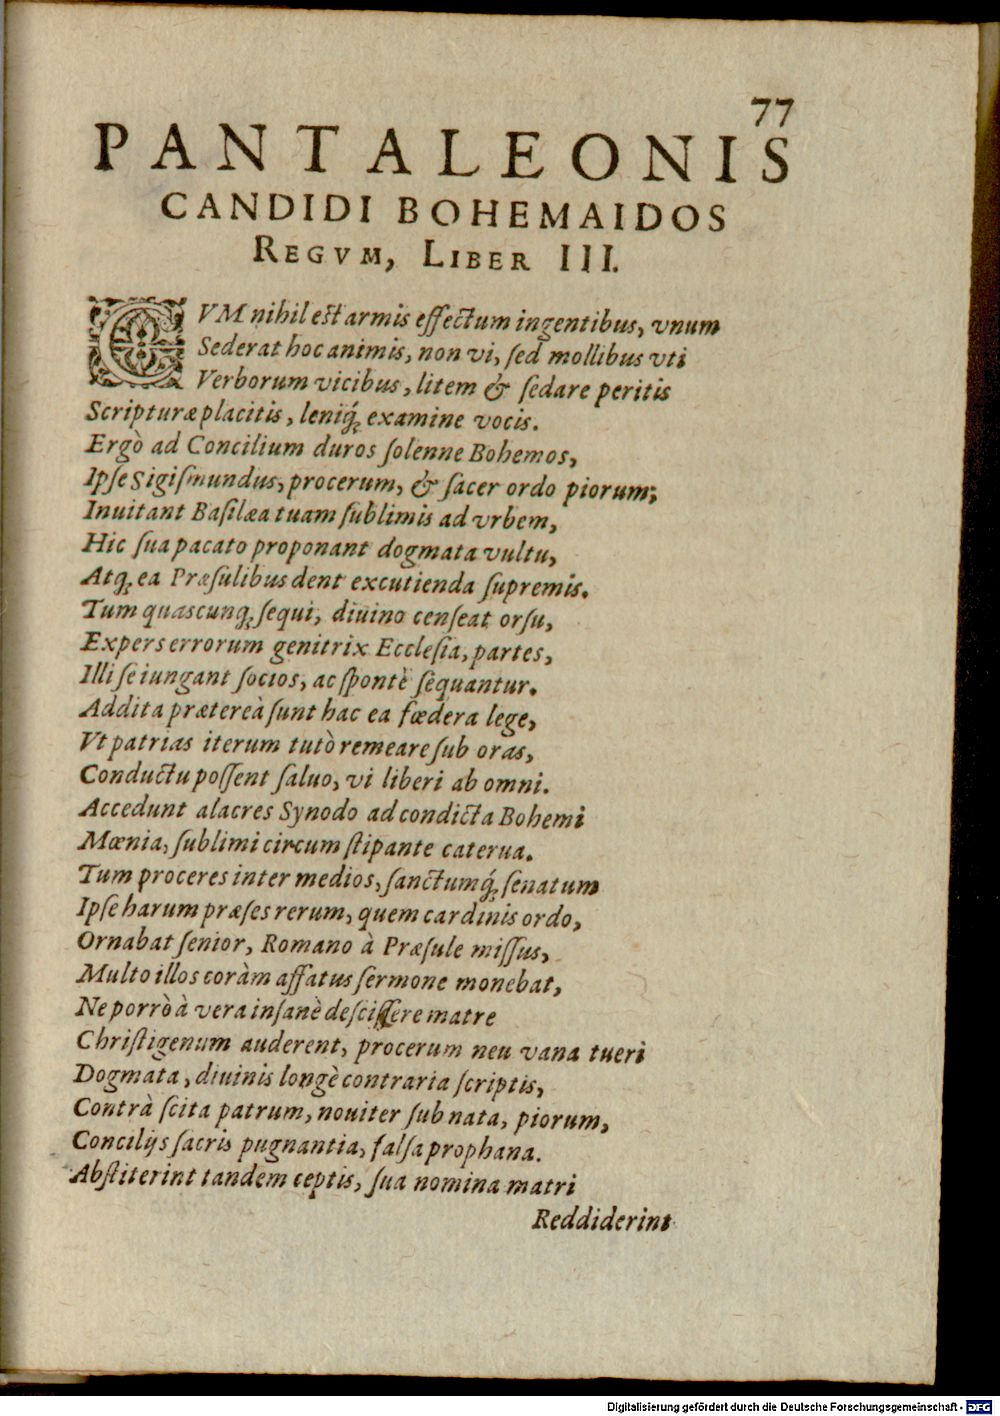 77
PANTALEONIS
CANDIDI BOHEMAIDOS
REGVM, LIBER III.
CVM nihil est armis effectum ingentibus, vnum
Sederat hoc animis, non vi, sed mollibus vti
Verborum vicibus, litem & sedare peritis
Scripturæ placitis, leniq́; examine vocis.
Ergò ad Concilium duros solenne Bohemos,
Ipse Sigismundus, procerum, & sacer ordo piorum;
Inuitant Basilæa tuam sublimis ad vrbem,
Hic sua pacato proponant dogmata vultu,
Atq; ea Præsulibus dent excutienda supremis.
Tum quascunq; sequi, diuino censeat orsu,
Expers errorum genitrix Ecclesia, partes,
Illi se iungant socios, ac spontè sequantur.
Addita prætereà sunt hac ea fœdera lege,
Vt patrias iterum tutò remeare sub oras,
Conductu possent saluo, vi liberi ab omni.
Accedunt alacres Synodo ad condicta Bohemi
Mœnia, sublimi circum stipante caterua.
Tum proceres inter medios, sanctumq́; senatum
Ipse harum præses rerum, quem cardinis ordo,
Ornabat senior, Romano à Præsule missus,
Multo illos coràm affatus sermone monebat,
Ne porrò à vera insanè desciscere matre
Christigenum auderent, procerum neu vana tueri
Dogmata, diuinis longè contraria scriptis,
Contrà scita patrum, nouiter sub nata, piorum,
Concilijs sacris pugnantia, falsa prophana.
Abstiterint tandem ceptis, sua nomina matri
Reddiderint
Digitalisierung gefördert durch die Deutsche Forschungsgemeinschaft - DFG